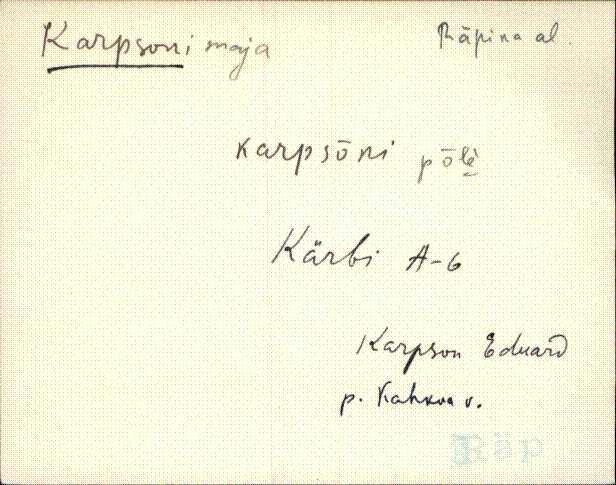 Karpsoni maja
Räpina al.
karpsōni pōlè
Kärbi A-6
Karpson Eduard
p. Kahkva v.
Räp